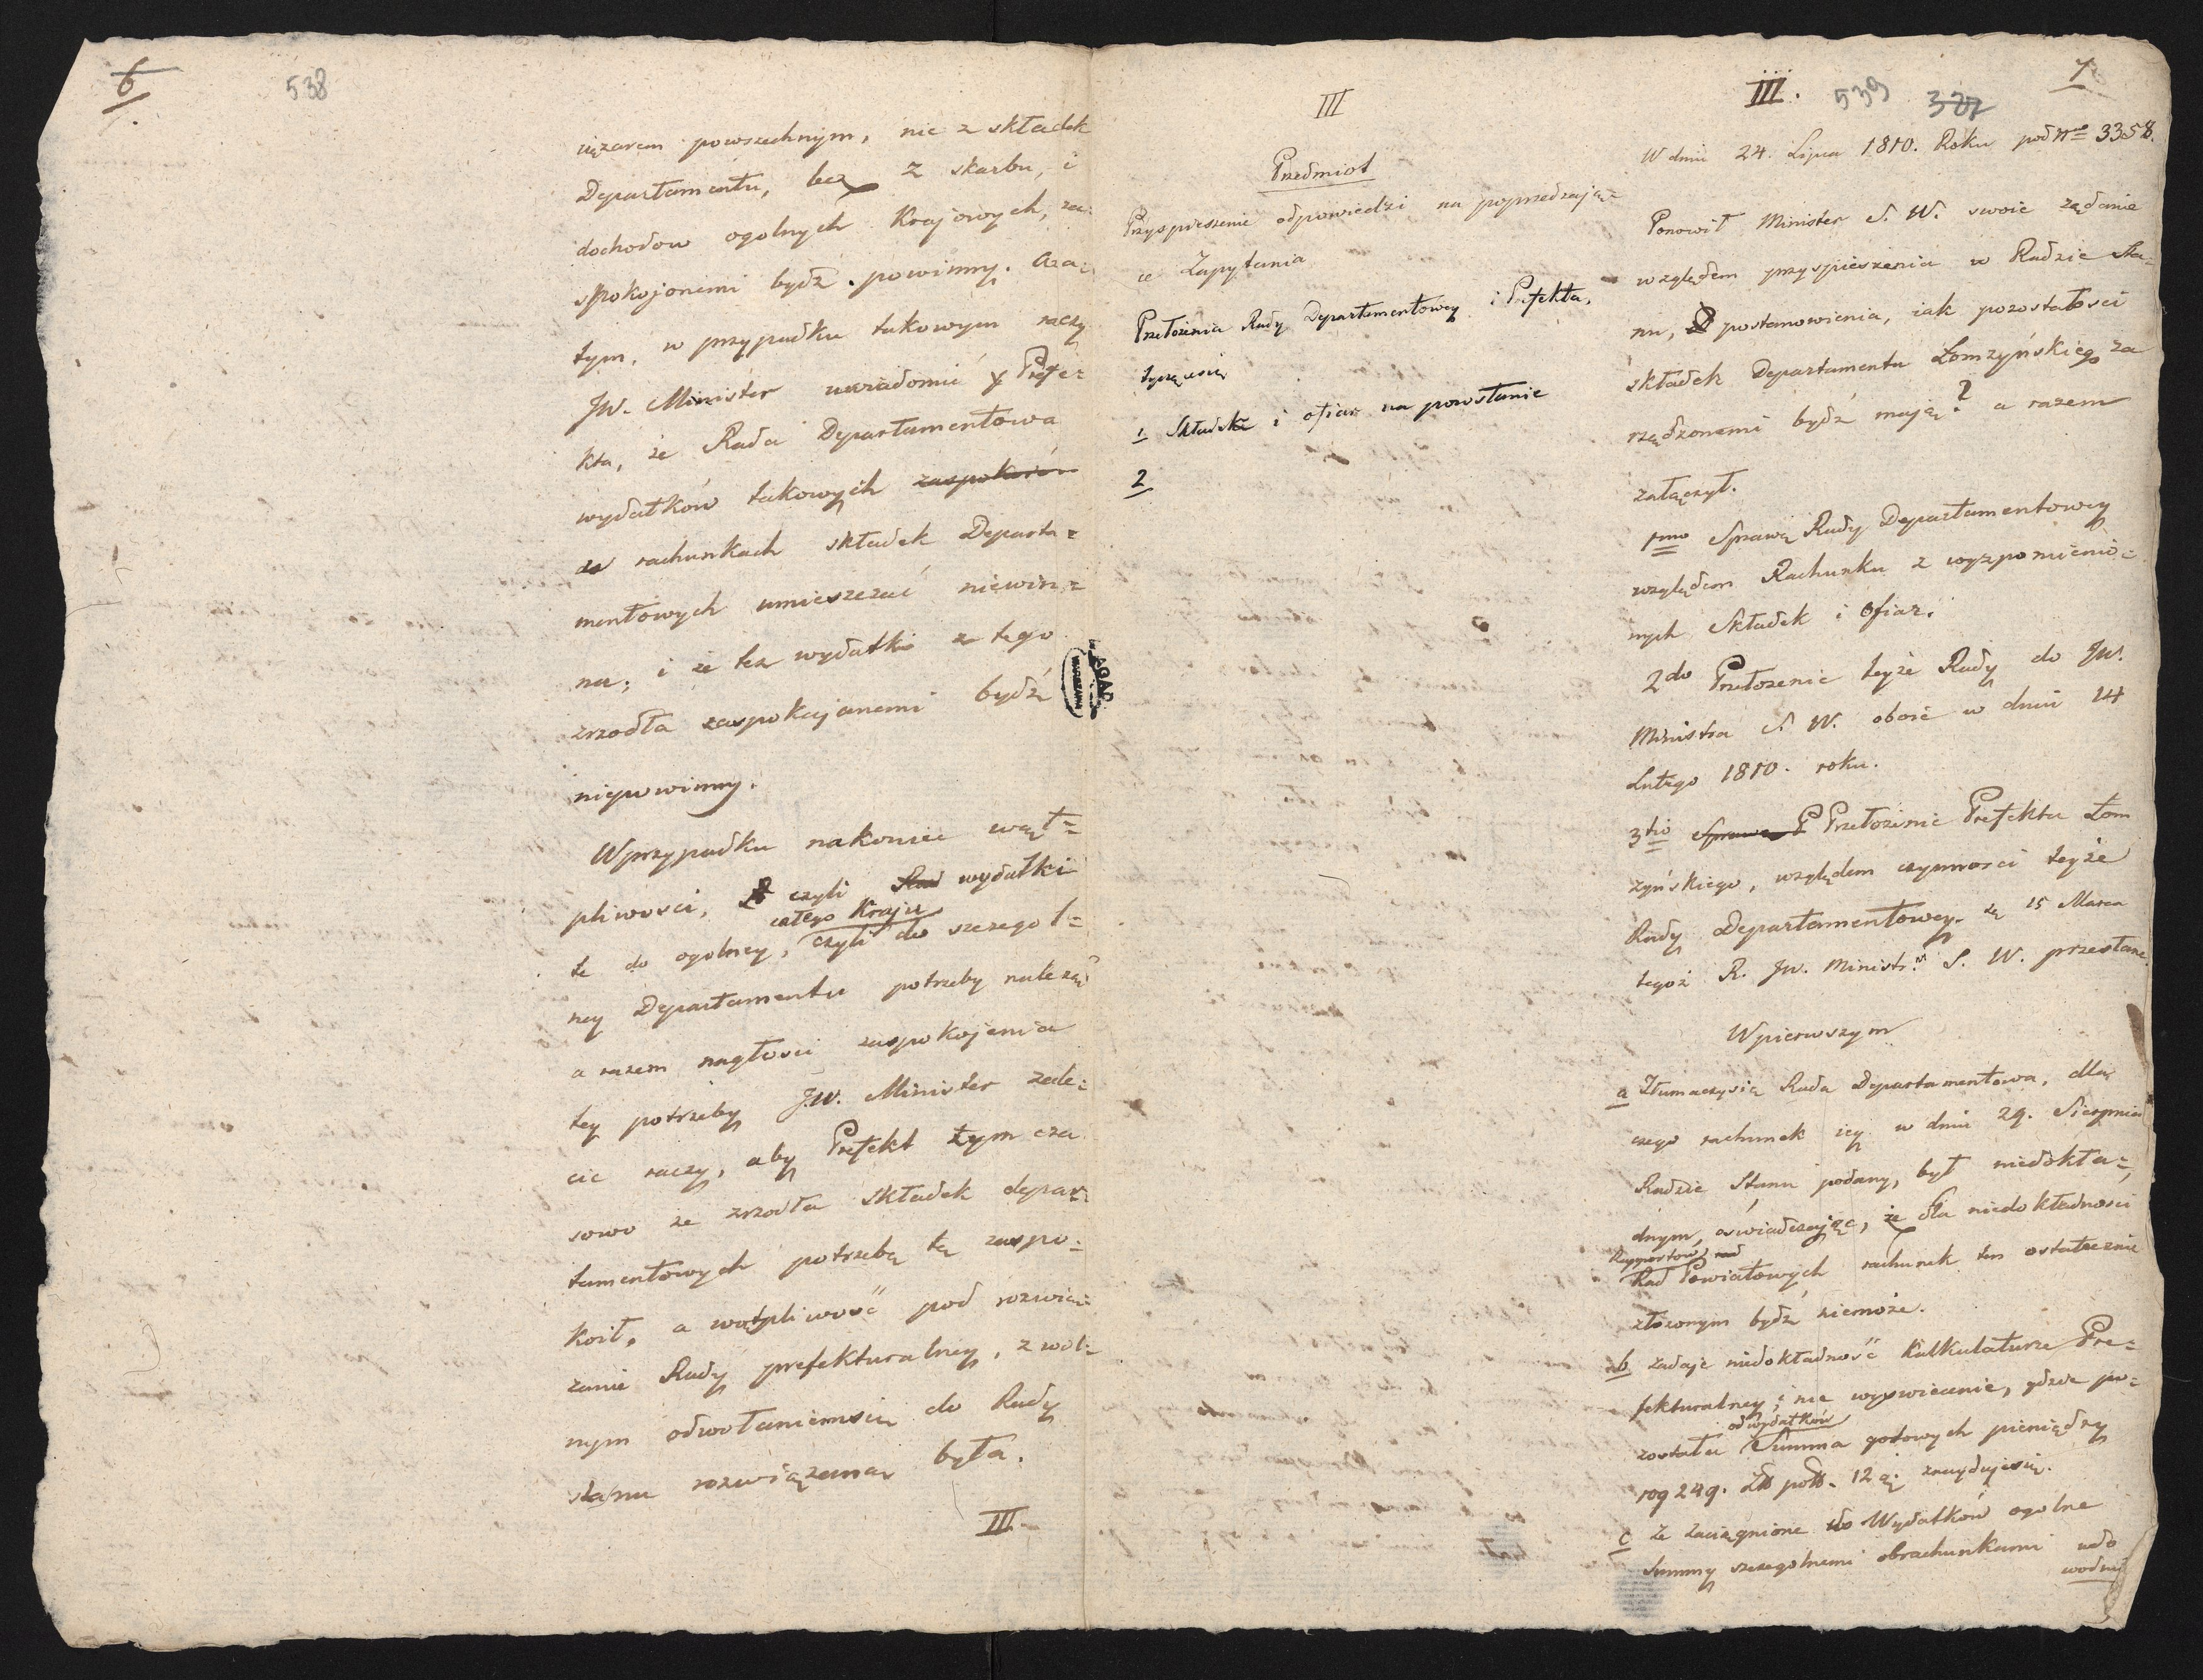 6
538
ciężarem powszechnym, nie z składek
Departamentu, lecz z skarbu, i
dochodow ogolnych Krajowych, za=
spokojonemi bydź powinny. aza=
tym, w przypadku takowym raczy
JW. Minister uwiadomić Prefe=
kta, że Rada Departamentowa
wydatków takowych zaspokoić
do rachunkach składek Departa=
mentowych umieszczać niewin=
na; i że też wydatki z tego
zrzodła zaspokajanemi bydź
niepowinny.
Wprzypadku nakoniec wąt=
pliwości, czyli Rad wydatki
całego Kraju
te do ogolney, czyli do szczegol=
ney Departamentu potrzeby należą
a razem nagłości zaspokojenia
tey potrzeby JW. Minister zale=
cić raczy, aby Prefekt tym cza
sowo ze zrzodła składek depar=
tamentowych potrzebę tę zaspo=
koił, a wątpliwość pod rozwią=
zanie Rady prefekturalney, z wol=
nym odwołaniemsię do Rady
stanu rozwiązana była.
III
III
Przedmiot
Przyspieszenie odpowiedzi na poprzedzają=
ce Zapytania
Przełożenia Rady Departamentowey i Prefekta,
tyczącesię
1 Składek i ofiar na powstanie
2
III.
539
327
7
W dniu 24. Lipca 1810. Roku pod Nro 3358.
Ponowił Minister S. W. swoie żądanie
względem przyspieszenia w Radzie Sta=
nu, postanowienia, iak pozostałości
składek Departamentu Łomżyńskiego za
rządzonemi bydź maią? a razem
załączył.
1mo Sprawę Rady Departamentowey
względem Rachunku z wyzpomienio=
nych Składek i ofiar.
2do Przełożenie teyże Rady do JW.
Ministra S. W. oboie w dniu 14
Lutego 1810. roku.
3tio Sprawę P Przełożenie Prefekta Łom
żyńskiego, względem czynności teyże
Rady Departamentowey. 15 Marca
tegoż R. JW. Ministr. S. W. przesłane.
Wpierwszym
a Tłumaczysię Rada Departamentowa, dla
czego rachunek iey w dniu 29. Sierpnia
Radzie Stanu podany, był niedokła=
dnym, oświadczając, że dla niedokładności
Rapportow
Rad Powiatowych rachunek ten ostatecznie
złożonym bydź niemoże.
b zadaje niedokładność Kalkulaturze Pre=
fekturalney; nie wyswiecenie, gdzie po=
od wydatków
zostala Summa gotowych pieniędzy
109249. Złt pols. 12 g. znayduiesię.
c Że zaciągnione do Wydatków ogolne
Summy szczegolnemi obrachunkami udo
wodni
AGAD
WARSZAWA